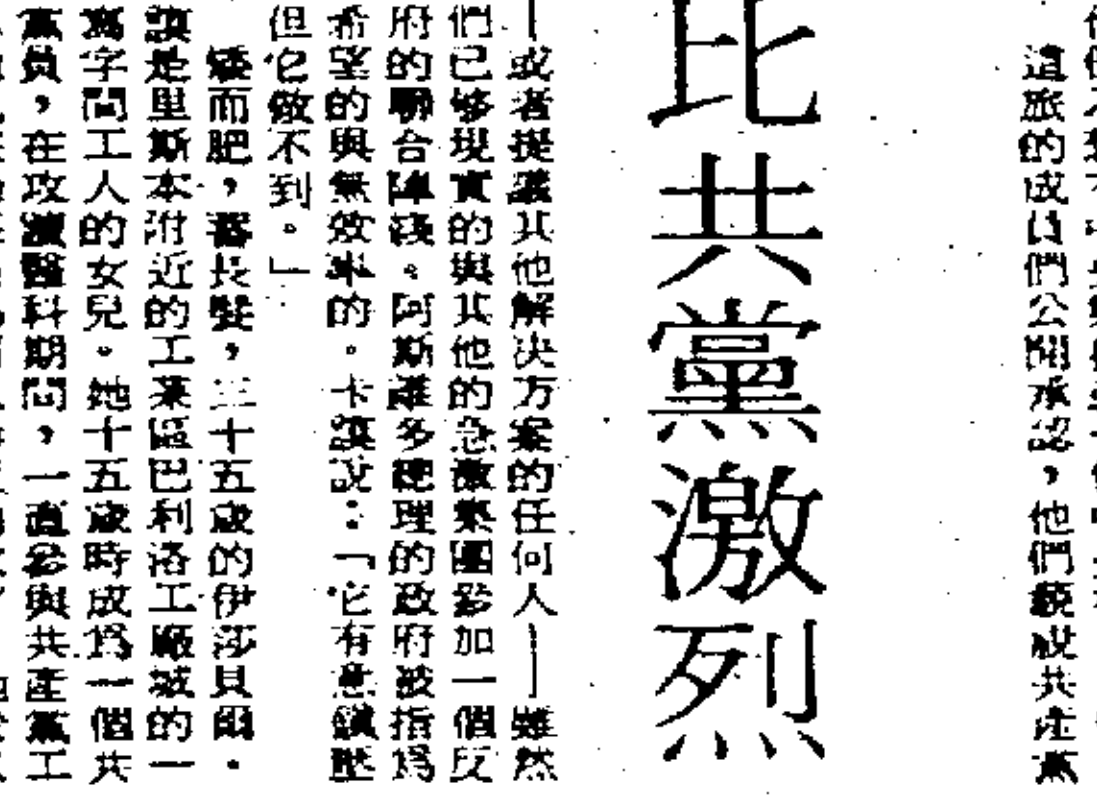 這旅的成員們公開承認，他們藐視共產黨
比共黨激烈
—或者提議其他解決方案的任何人—雖然
們已够現實的與其他的急激集團參加一個反
府的聯合陣綫。阿斯維多總理的政府被指爲
希望的與無效率的。卡謨說：「它有意鎮壓
但它做不到。」
矮而肥，蓄長髮，三十五歲的伊莎貝爾・
謨是里斯本附近的工業區巴利洛工廠城的一
寫字間工人的女兒。她十五歲時成爲一個共
黨員，在攻讀醫科期間，一直參與共產黨工